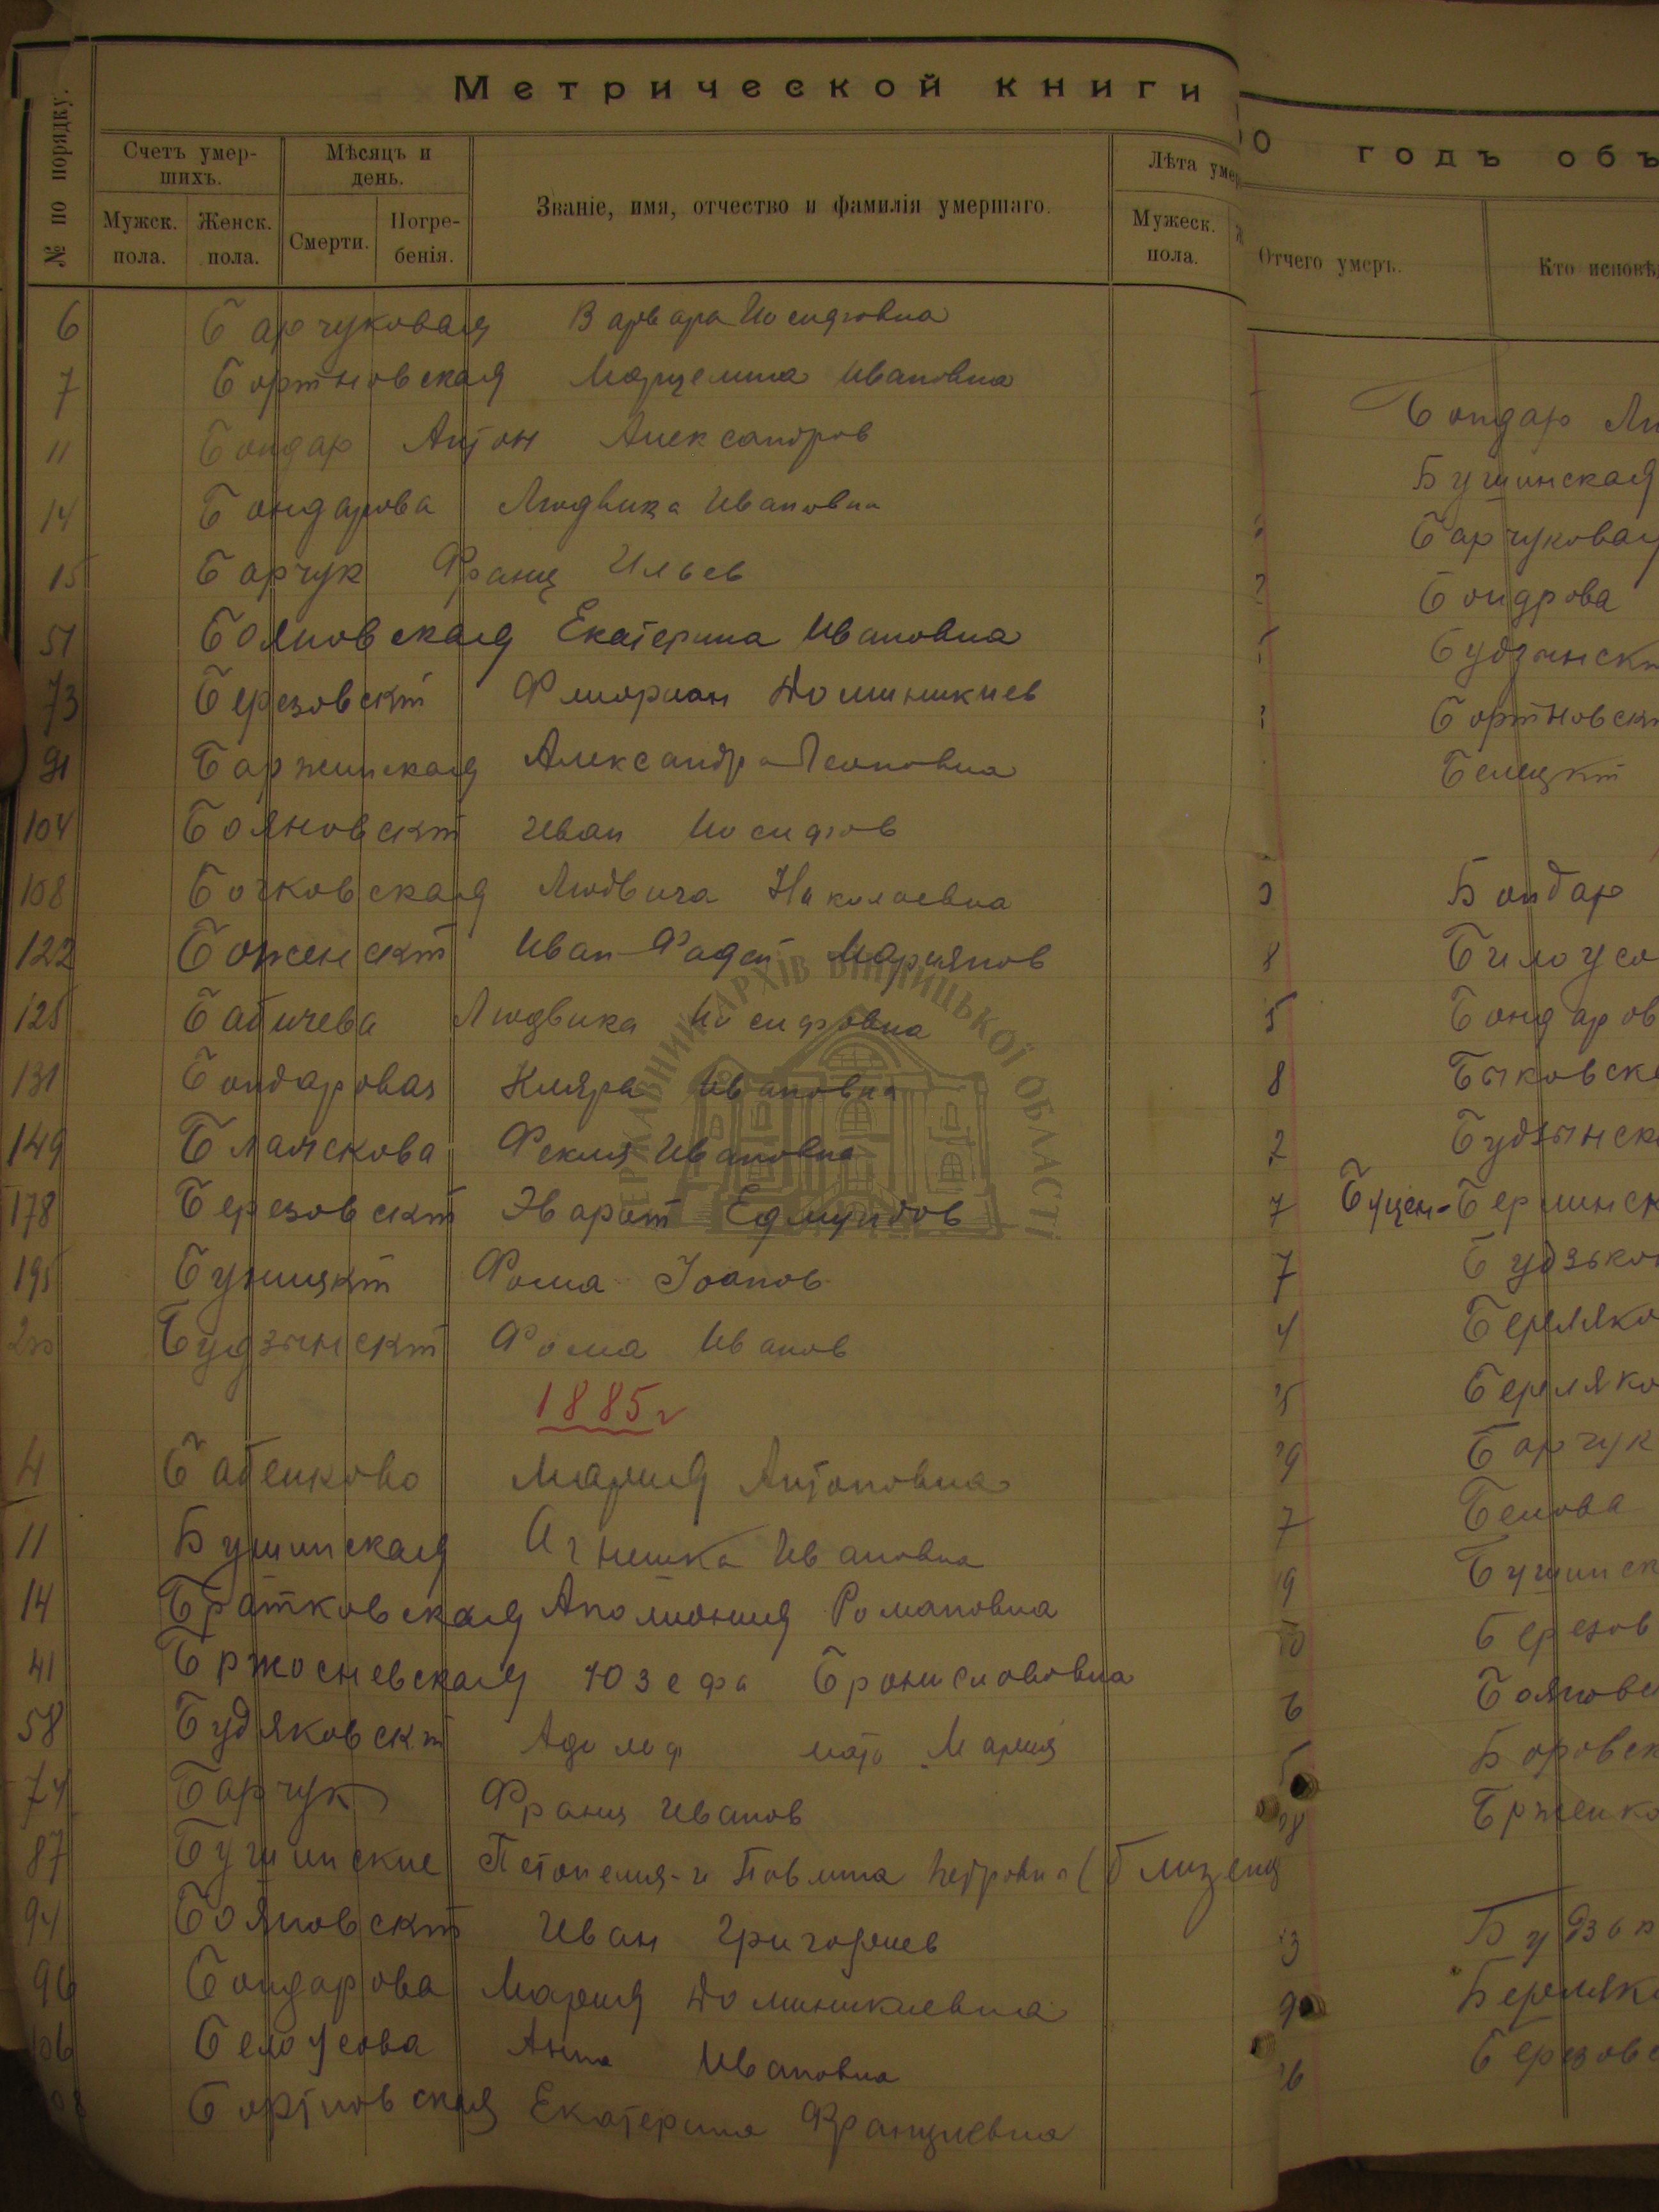 Метрической книги
№ по порядку.
Счетъ умер-
шихъ.
Мужск.
пола.
Женск.
пола.
Мѣсяцъ и
день.
Смерти.
Погре-
бенія.
Званіе, имя, отчество и фамилія умершаго.
Лѣта
Мужеск.
пола.
6 Барчуковая Варвара Иосифовна
7 Бортновская Марцелина Ивановна
11 Бондар Антон Александров
14 Бондарова Людвика Ивановна
15 Барчук Франц Ильев
51 Бояновская Екатерина Ивановна
73 Березовскій Флориан Доминикиев
91 Баржинская Александра Леоновна
104 Бояновскій Иван Иосифов
108 Бочковская Людвига Николаевна
122 Боженскій Иван-Фадей Мариянов
125 Бабичева Людвика Иосифовна
131 Бондаровая Кляра Ивановна
149 Фекля Ивановна
178 Березовскій Эварист Едмундов
195 Буницкій Фома Іоанов
200 Будзынскій Фома Иванов
1885 г
4 Бабенково Мария Антоновна
11 Бушинская Агнешка Ивановна
14 Братковская Аполиония Романовна
41 Бржосневская Юзефа Брониславовна
58 Будяковскій Адольф мать Мария
74 Барчук Франц Иванов
87 Бушинские Петронеля-и Павлина Петровны (близнец
94 Бояновскій Иван Григориев
96 Бондарова Мария Доминикиевна
106 Белоусова Анна Ивановна
Бортновская Екатерина Францневна
годъ
Отчего умеръ.
Кто
Бондар
Бушинская
Барчуковая
Бондрова
Белецкій
Бондар
8
5
8
2
7 Буцен-
7
4
Барчук
7 Белова
ДЕРЖАВНИЙ АРХІВ ВІННИЦЬКОЇ ОБЛАСТІ